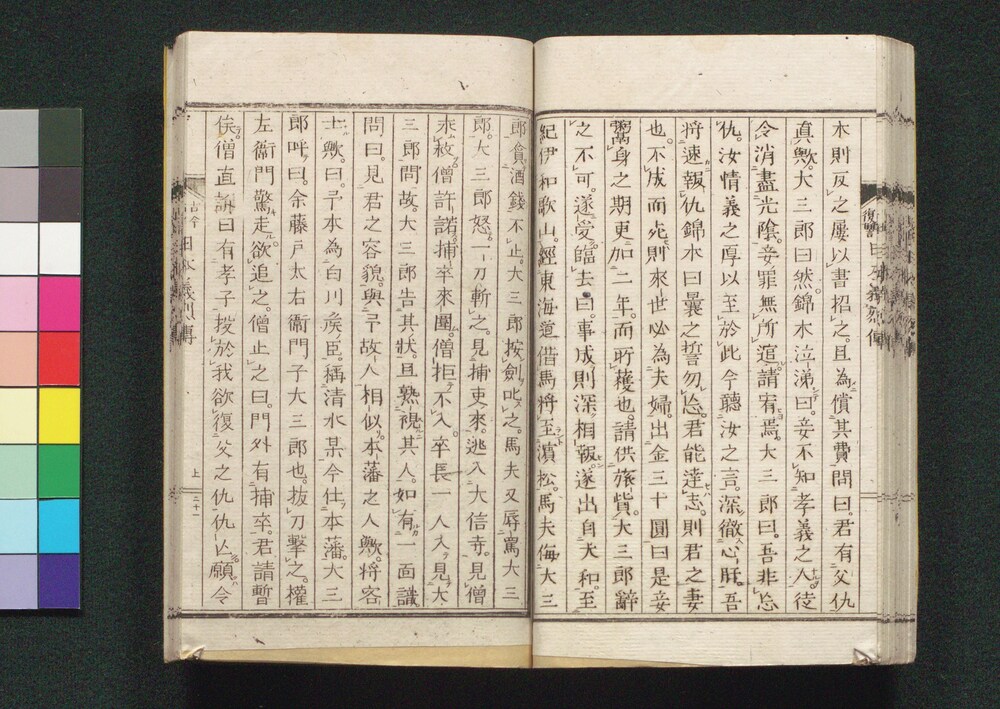 木則反之屢以書招之。且為償其費問曰。君有父仇
真歟。大三郎曰然。錦木泣涕曰。妾不知孝義之人。徒
令消盡光陰。妾罪無所逭。請宥焉。大三郎曰。吾非忘
仇。汝情義之厚以至於此今聽汝之言深徹心肝。吾
將速報仇錦木曰曩之誓勿忘。君能達志。則君之妻
也。不成而死則來世必為夫婦。出金三十圓曰是妾
鬻身之期更加二年。而所獲也。請供旅貲。大三郎辭
之不可。遂受。臨去曰。事成則深相報。遂出自大和。至
紀伊和歌山。經東海道借馬將至濱松。馬夫侮大三
郎貪酒錢不止。大三郎按劍叱之。馬夫又辱罵大三
郎。大三郎怒。一刀斬之。見捕吏來。逃入大信寺。見僧
求救僧許諾捕卒來圍。僧拒不入。卒長一人入見大
三郎問故。大三郎告其狀。且熟視其人。如有一面識
問曰。見君之容貌。與予故人相似。本藩之人歟。將客
士歟。曰。予本為白川矦臣。稱清水某今仕本藩。大三
郎呼曰。余藤戸太右衞門子大三郎也。拔刀擊之。權
左衞門驚走。欲追之。僧止之曰。門外有捕卒。君請暫
俟。僧直訴曰有孝子投於我欲復父之仇仇亡。願令
復讐
古今 日本義烈傳
上 二十一